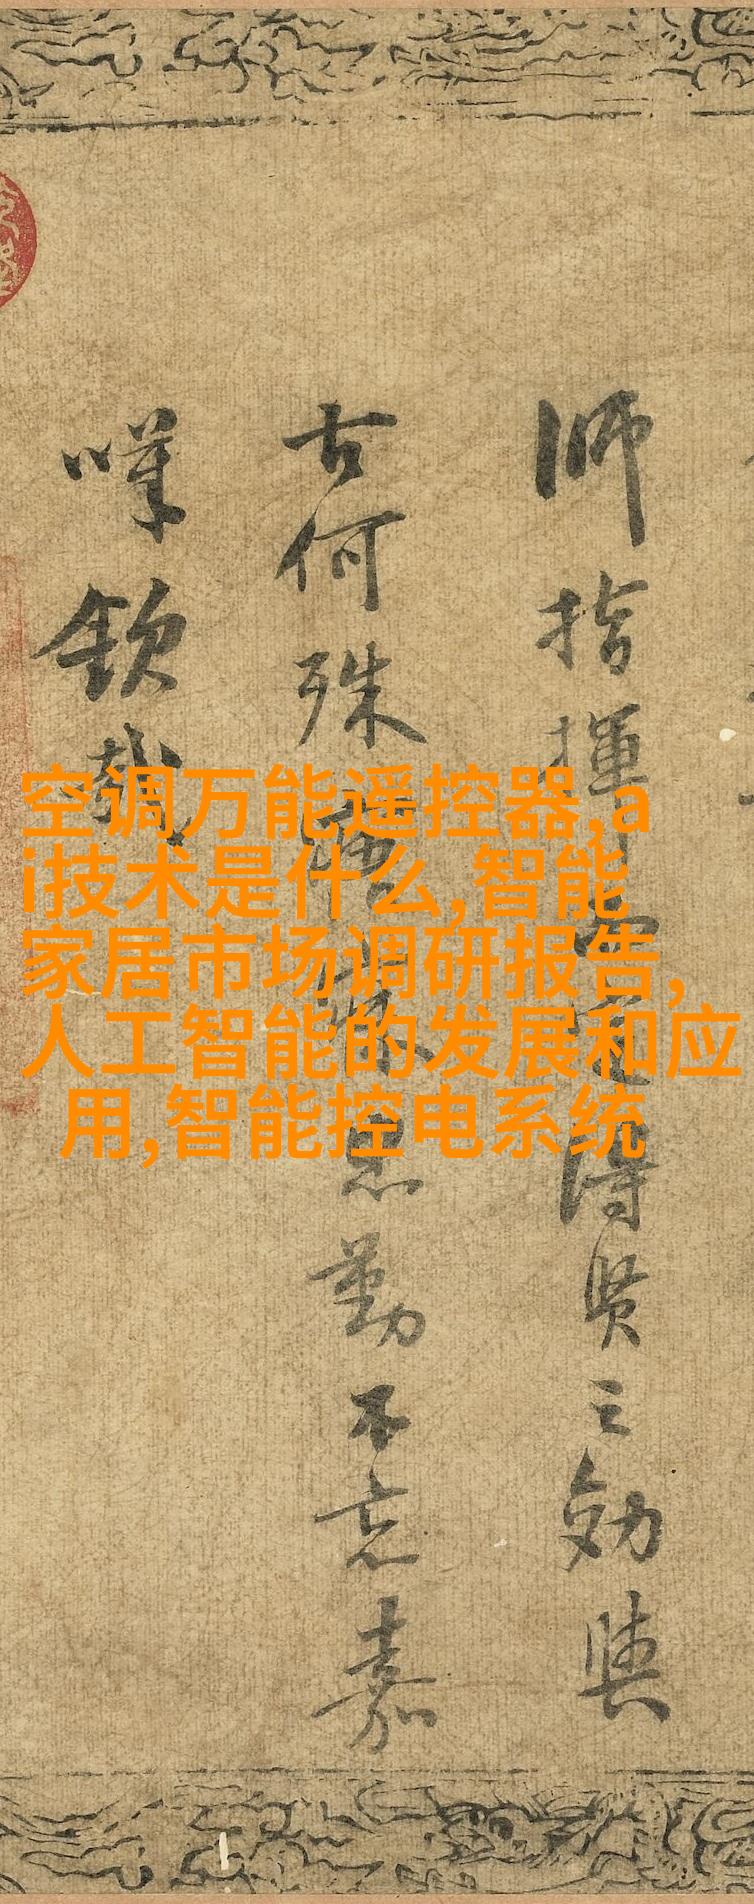 師指揮而定得賢之効與
古何殊勤不忘嘉
嘆欽哉
空调万能遥控器,a
i技术是什么,智能
家居市场调研报告,
人工智能的发展和应
用,智能控电系统